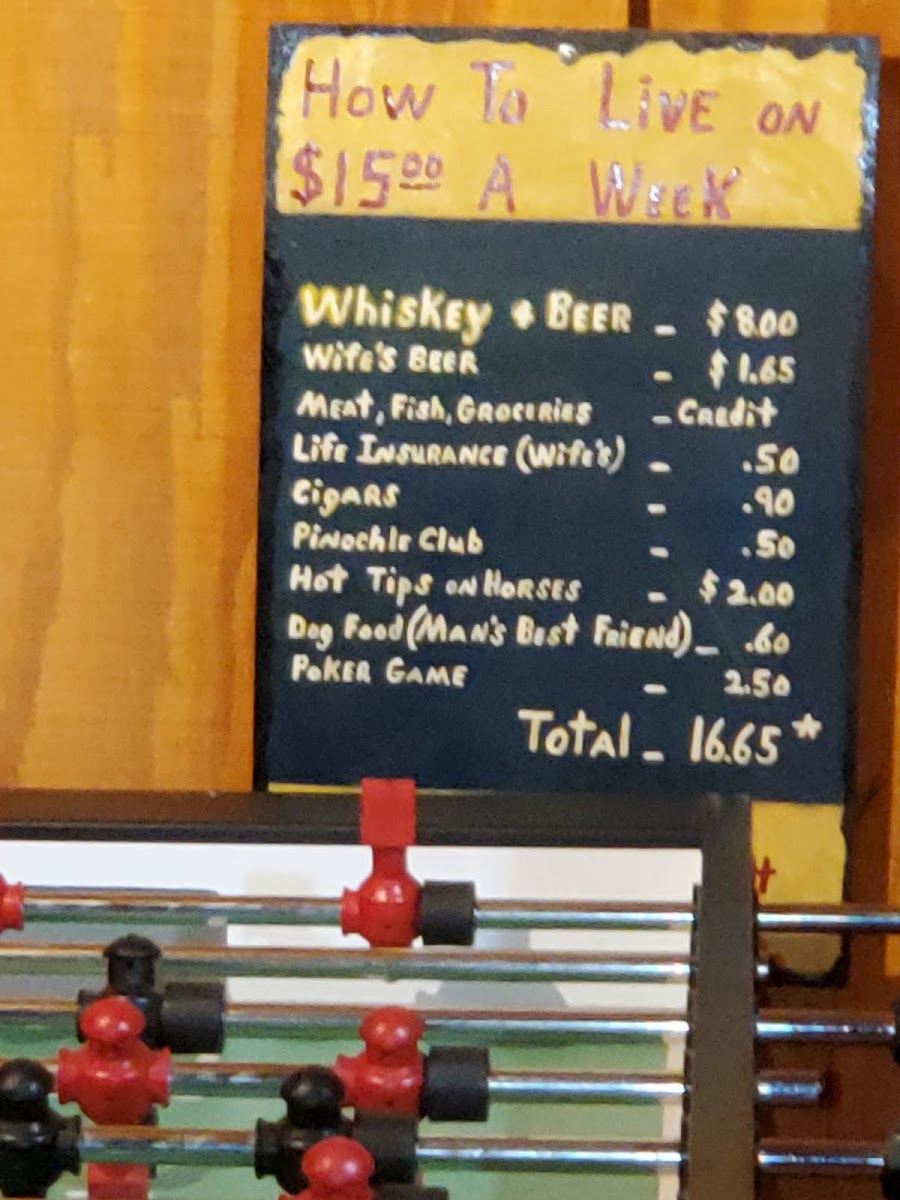 How To Live on
$15.00 A Week
Whiskey & Beer - $8.00
Wife's Beer - $1.65
Meat, Fish, Groceries - Credit
Life Insurance (Wife's) - .50
Cigars - .90
Pinochle Club - .50
Hot Tips on Horses - $2.00
Dog Food (Man's Best Friend) - .60
Poker Game - 2.50
Total - 16.65*